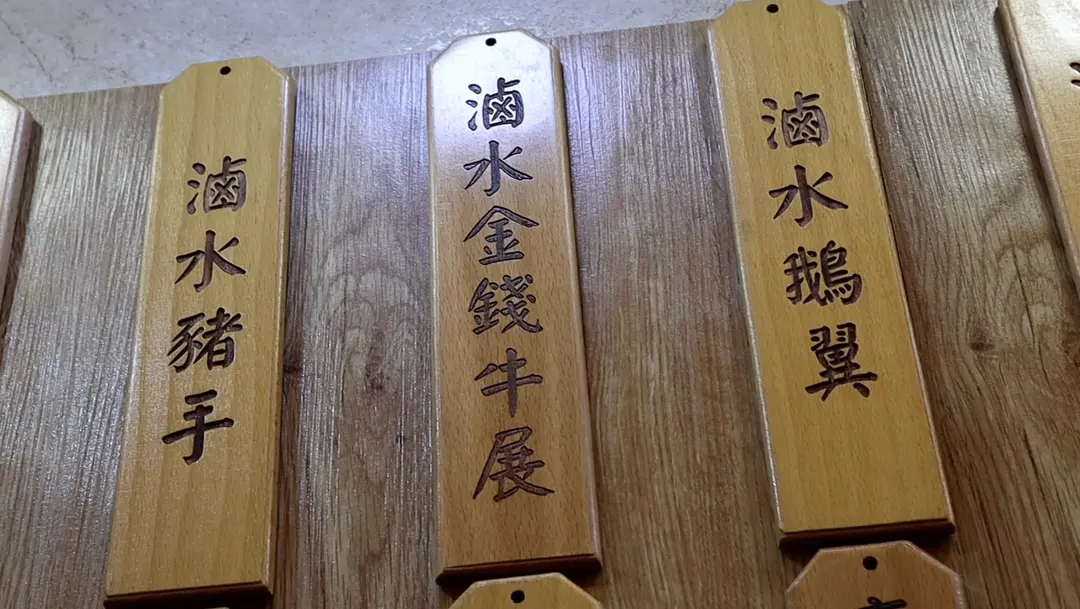 滷水豬手
滷水金錢牛展
滷水鵝翼